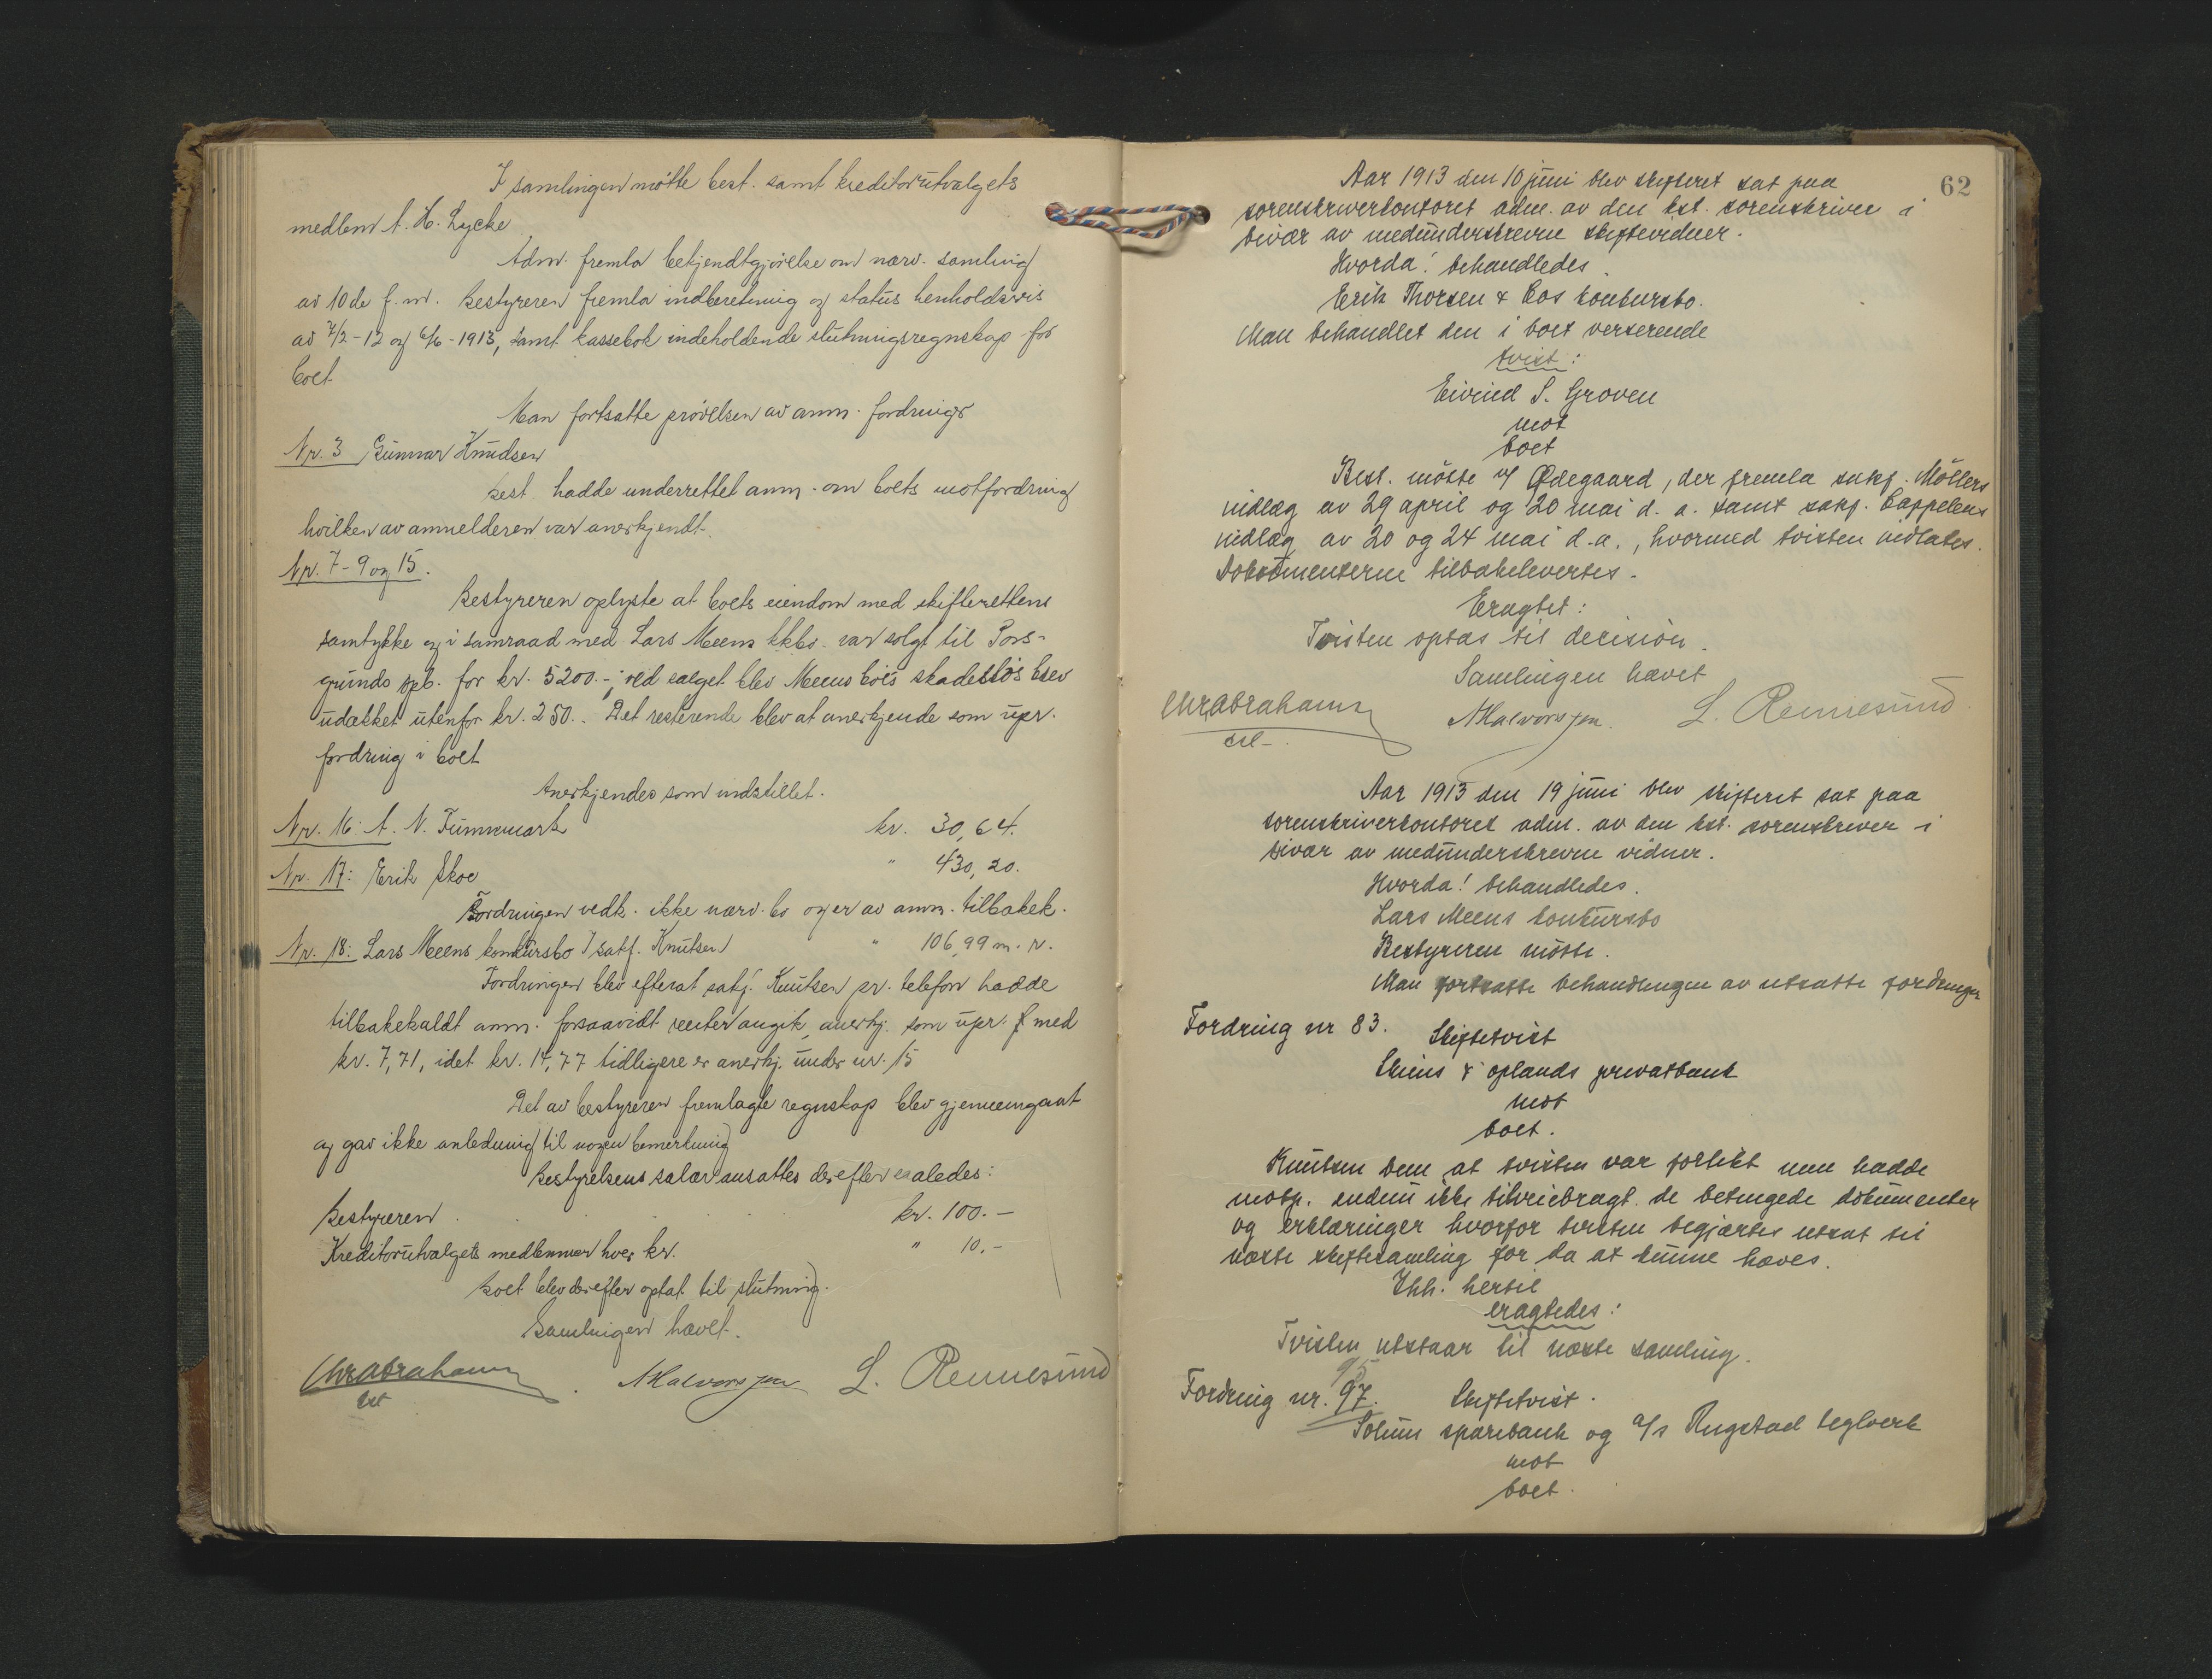 I samlingen møtte best. samt kreditorutvalgets
medlem A. H. Lycke
Adm. fremla bekjendtgjørelse om nærv. samling
av 10de f. m. Bestyreren fremla indberetning og status henholdsvis
av 7/2-12 og 6/6-1913, samt kassebok indeholdende slutningsregnskap for
boet
Man fortsatte prøvelsen av anm. fordringer
Nr. 3 Gunnar Knudsen
Best. hadde underrettet anm. om boets motfordring
hvilken av anmelderen var anerkjendt.
Nr. 7 - 9 og 15.
Bestyreren oplyste at boets eiendom med skifterettens
samtykke og i samraad med Lars Meens kkbo. var solgt til Pors-
grunds spb. for kr. 5200.-; ved salget blev Meens bo's skadesløsbrev
udækket utenfor kr. 250.- Det resterende blev at anerkjende som upr.
fordring i boet
Anerkjendes som indstillet.
Nr. 16: A. N. Tummark kr. 30,64.
Nr. 17: Erik Skoe " 430,20.
Fordringen vedk. ikke nærv. bo og er av anm. tilbakek.
Nr. 18: Lars Meens konkursbo / sakf. Knutsen " 106,99 m. r.
Fordringen blev efterat sakf. Knutsen pr. telefon hadde
tilbakekaldt anm. forsaavidt renter angik, anerkj. som upr. f med
kr. 7,71, idet kr. 14,77 tidligere er anerkj. under nr. 15
Det av bestyreren fremlagte regnskap blev gjennemgaat
og gav ikke anledning til nogen bemerkning
Bestyrelsens salær ansattes derefter saaledes:
Bestyreren . . . . . kr. 100.-
Kreditorutvalgets medlemmer hver kr. " 10.-
Boet blev derefter optat til slutning.
Samlingen hævet.
Chr Abrahams N Halvorsen L. Rennesund
cst
62
Aar 1913 den 10 juni blev skifteret sat paa
sorenskriverkontoret adm. av den kst. sorenskriver i
bivær av medunderskrevne skiftevidner.
Hvorda! behandledes.
Erik Thorsen & Cos konkursbo.
Man behandlet den i boet verserende
tvist:
Eivind S. Groven
mot
boet
Best. møtte v/ Ødegaard, der fremla sakf. Møllers
indlæg av 29 april og 20 mai d. a. samt sakf. Cappelens
indlæg av 20 og 24 mai d. a., hvormed tvisten indlates.
Dokumenterne tilbakelevertes.
Eragtet:
Tvisten optas til decision.
Samlingen hævet
Chr Abrahams N Halvorsen. L. Rennesund.
cst.
Aar 1913 den 19 juni blev skifteret sat paa
sorenskriverkontoret adm. av den kst. sorenskriver i
bivær av medunderskrevne vidner.
Hvorda! behandledes.
Lars Meens konkursbo
Bestyreren møtte.
Man fortsatte behandlingen av utsatte fordringer
Fordring nr 83. Skiftetvist
Skiens & oplands privatbank
mot
boet.
Knutsen bem. at tvisten var forlikt men hadde
motp. endnu ikke tilveiebragt de betingede dokumenter
og erklæringer hvorfor tvisten begjærtes utsat til
næste skiftesamling for da at kunne hæves.
Ihh. hertil
eragtedes:
Tvisten utstaar til næste samling.
95
Fordring nr. 97. Skiftetvist.
Solum sparebank og a/s Rugstad teglverk
mot
boet.